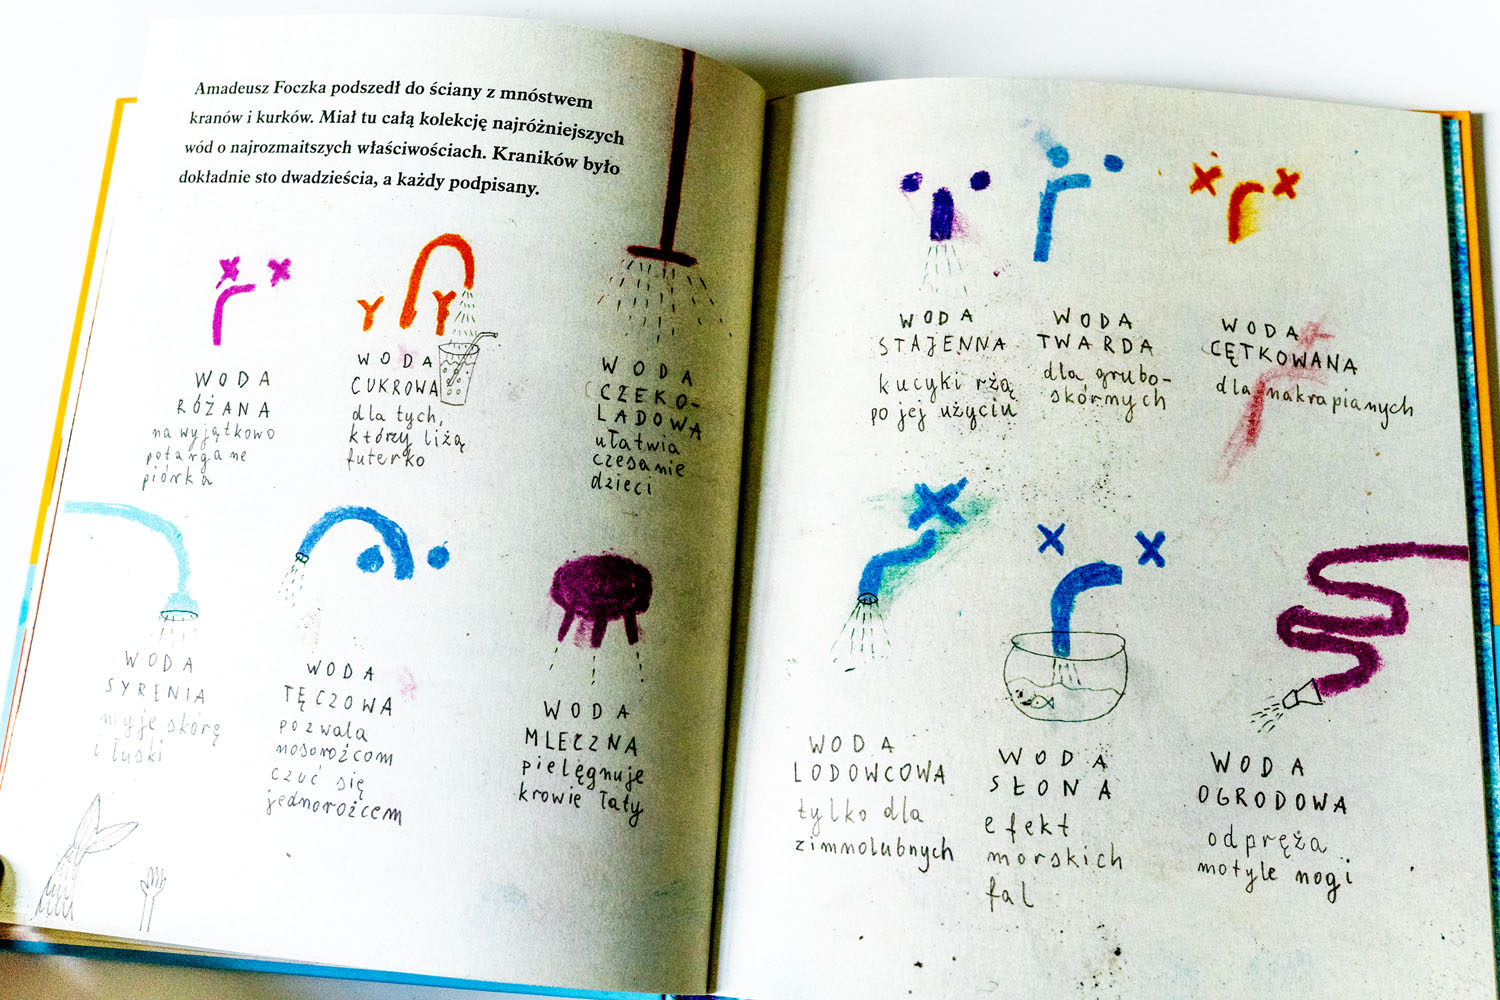 Amadeusz Foczka podszedł do ściany z mnóstwem
kranów i kurków. Miał tu całą kolekcję najróżniejszych
wód o najrozmaitszych właściwościach. Kraników było
dokładnie sto dwadzieścia, a każdy podpisany.
WODA
RÓŻANA
na wyjątkowo
potargane
piórka
WODA
CUKROWA
dla tych,
którzy liżą
futerko
WODA
CZEKO-
LADOWA
ułatwia
czesanie
dzieci
WODA
SYRENIA
myje skórę
i łuski
WODA
TĘCZOWA
pozwala
nosorożcom
czuć się
jednorożcem
WODA
MLECZNA
pielęgnuje
krowie łaty
WODA
STAJENNA
kucyki rżą
po jej użyciu
WODA
TWARDA
dla grubo-
skórnych
WODA
CĘTKOWANA
dla nakrapianych
WODA
LODOWCOWA
tylko dla
zimnolubnych
WODA
SŁONA
efekt
morskich
fal
WODA
OGRODOWA
odpręża
motyle nogi